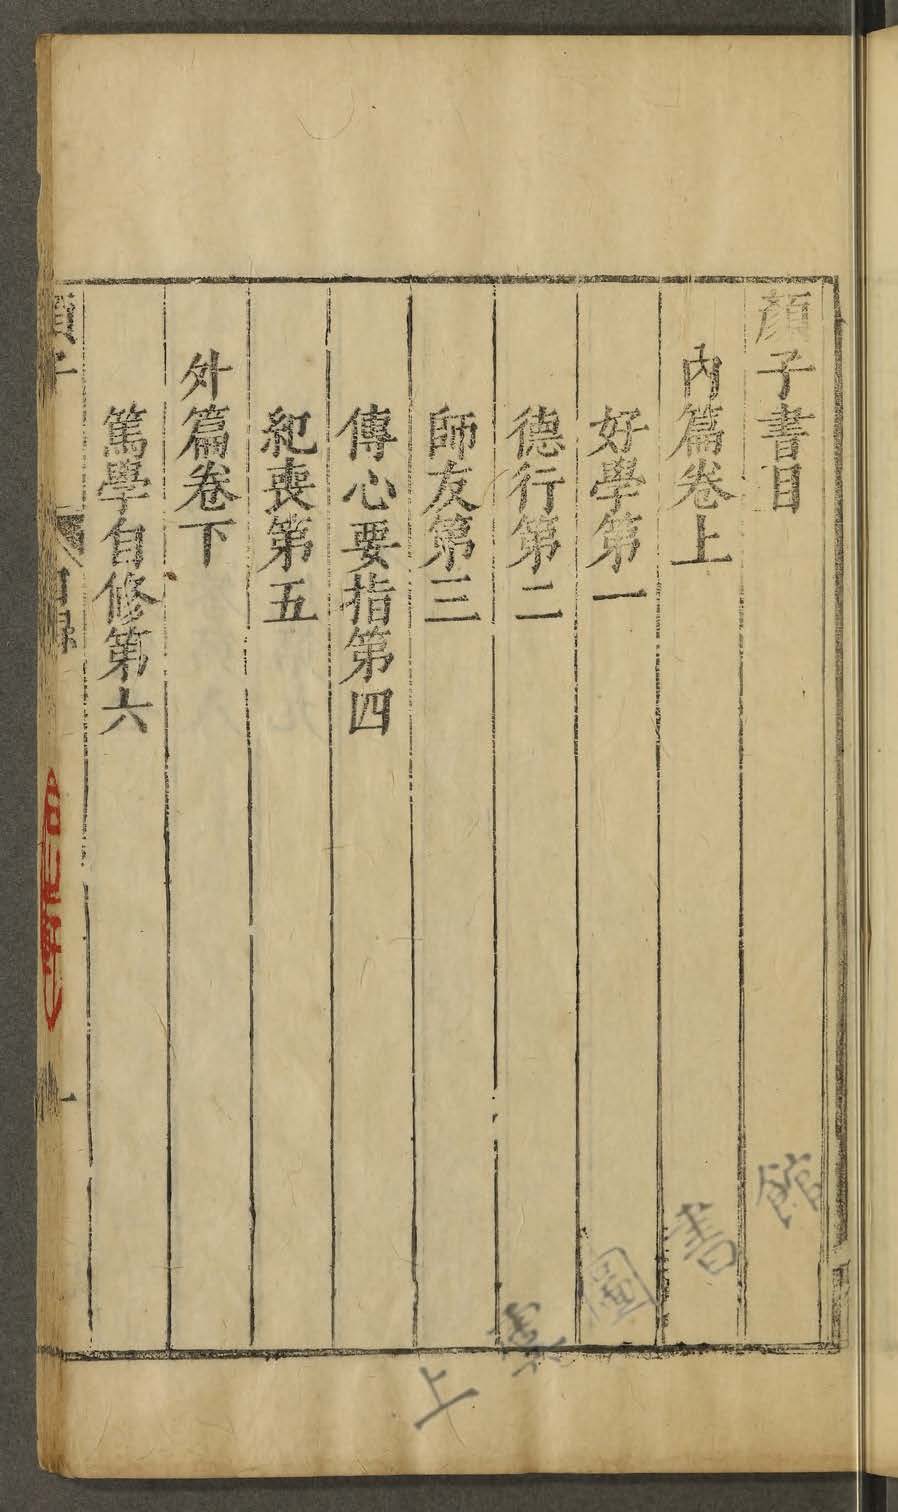 顏子書目
內篇卷上
好學第一
德行第二
師友第三
傳心要指第四
紀喪第五
外篇卷下
篤學自修第六
目錄
一
上 圖書館